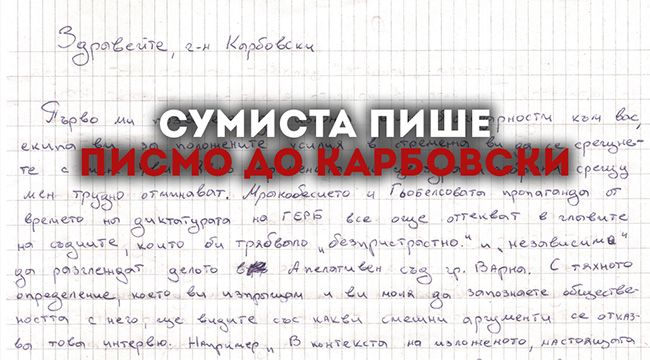 Здравейте, г-н Карбовски
Първо ми към вас,
СУМИСТА ПИШЕ
екипа ви за положените усилия в стремежа ви да се срещне-
ПИСМО ДО КАРБОВСКИ
те с срещу
мен трудно отминават. Мракобесието и Гьобелсовата пропаганда от
времето на диктатурата на ГЕРБ все още оттекват в главите
на съдиите, които би трябвало „безпристрастно" и „независимо"
да разглеждат делото в Апелативен съд гр. Варна. С тяхното
определение, което ви изпращам и ви моля да запознаете обществе-
ността с него, ще видите със какви смешни аргументи се отказ-
ва това интервю. Например „В контекста на изложеното, настоящата